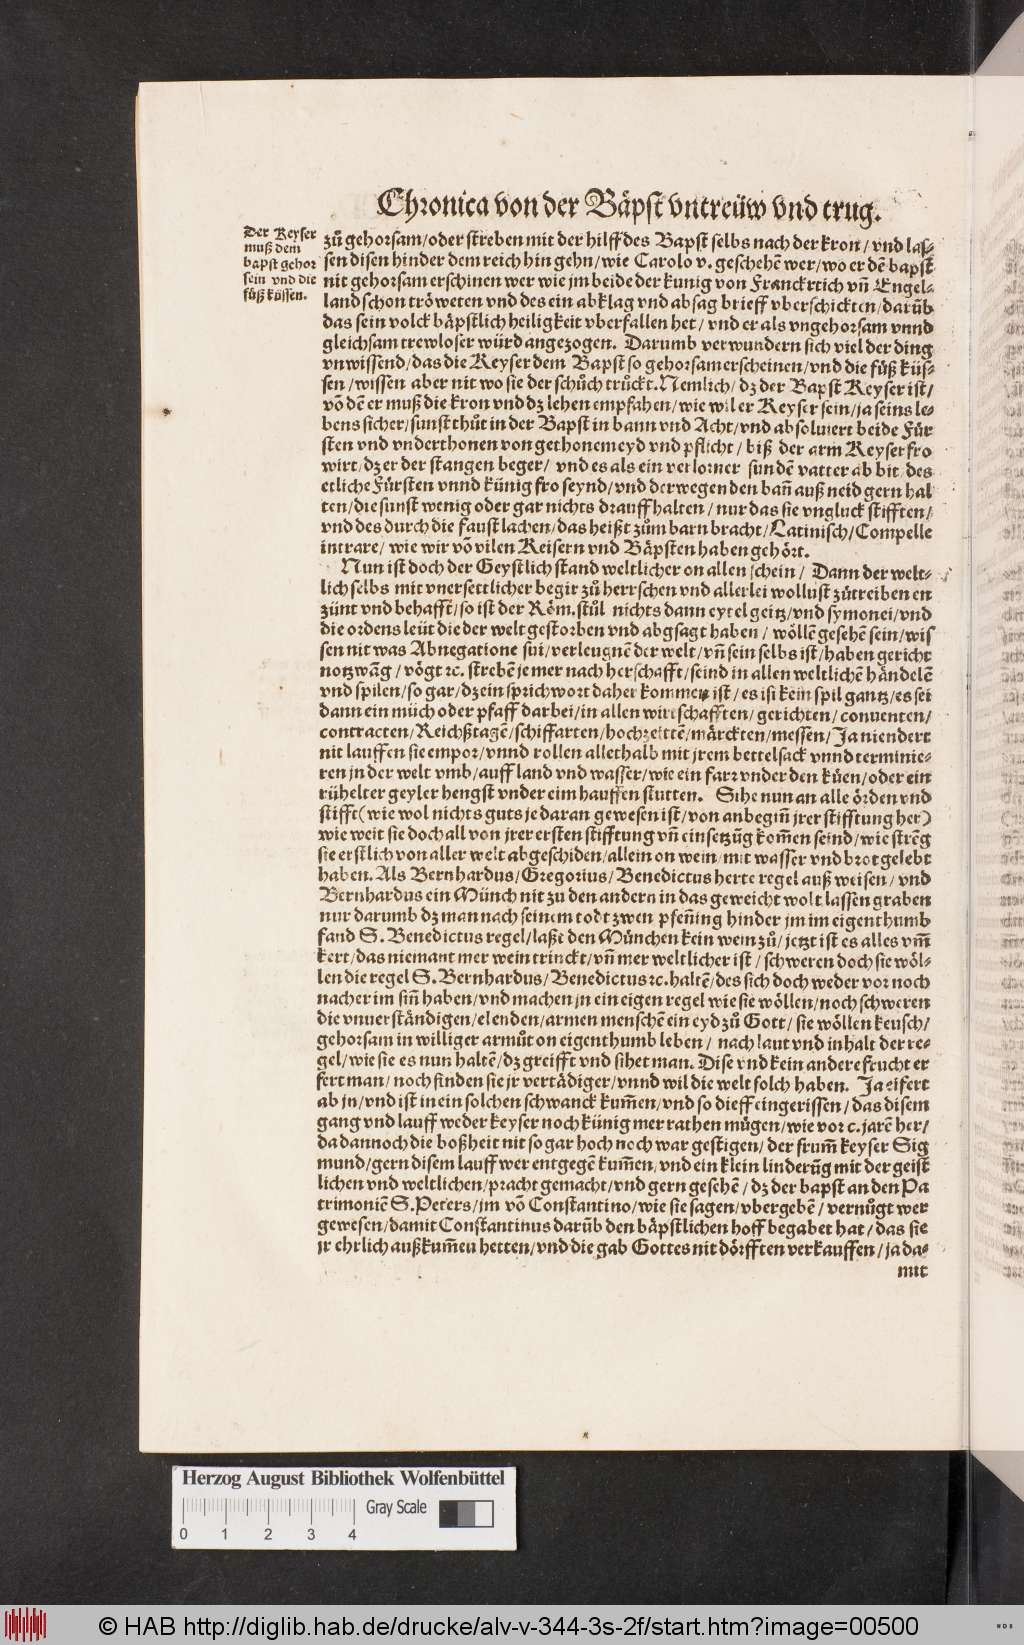 Chronica von der Bäpst vntreüw vnd trug.
Der Keyser
muß dem
bapst gehor
sein vnd die
füß küssen.
zů gehorsam/oder streben mit der hilff des Bapst selbs nach der kron/ vnd las-
sen disen hinder dem reich hin gehn/wie Carolo v. geschehē wer/wo er dē bapst
nit gehorsam erschinen wer wie jm beide der kunig von Franckrrich vn̄ Engel-
land schon tröweten vnd des ein abklag vnd absag brieff vberschickten/darūb
das sein volck bäpstlich heiligkeit vberfallen het/ vnd er als vngehorsam vnnd
gleichsam trewloser würd angezogen. Darumb verwundern sich viel der ding
vnwissend/das die Keyser dem Bapst so gehorsam erscheinen/vnd die füß küs-
sen/wissen aber nit wo sie der schůch truckt. Nemlich/ dz der Bapst Keyser ist/
vō dē er muß die kron vnd dz lehen empfahen/wie wil er Keyser sein/ja seins le-
bens sicher/sunst thůt in der Bapst in bann vnd Acht/vnd absoluiert beide Für
sten vnd vnderthonen von gethonem eyd vnd pflicht/ biß der arm Keyser fro
wirt/dz er der stangen beger/ vnd es als ein verlorner sun dē vatter ab bit/des
etliche Fürsten vnnd künig fro seynd/vnd derwegen den ban̄ auß neid gern hal
ten/die sunst wenig oder gar nichts drauff halten/ nur das sie vngluck stifften/
vnd des durch die faust lachen/das heißt zům barn bracht/Latinisch/Compelle
intrare/ wie wir vō vilen Keisern vnd Bäpsten haben gehört.
Nun ist doch der Geystlich stand weltlicher on allen schein/ Dann der welt-
lich selbs mit vnersettlicher begir zů herrschen vnd allerlei wollust zůtreiben en
zünt vnd behafft/so ist der Röm. stůl nichts dann eytel geitz/vnd symonei/vnd
die ordens leüt die der welt gestorben vnd abgsagt haben/ wöllē gesehē sein/wis
sen nit was Abnegatione sui/verleugnē der welt/vn̄ sein selbs ist/haben gericht
notzwāg/ vögt ꝛc. strebē jemer nach herschafft/seind in allen weltlichē händelē
vnd spilen/so gar/dz ein sprichwort daher kommen ist/es ist kein spil gantz/es sei
dann ein müch oder pfaff darbei/in allen wirtschafften/gerichten/conuenten/
contracten/Reichßtagē/schiffarten/hochzeittē/märckten/messen/Ja niendert
nit lauffen sie empor/vnnd rollen allethalb mit jrem bettelsack vnnd terminie-
ren jn der welt vmb/auff land vnd wasser/wie ein farr vnder den küen/oder ein
rühelter geyler hengst vnder eim hauffen stutten. Sihe nun an alle örden vnd
stifft(wie wol nichts guts je daran gewesen ist/von anbegin̄ jrer stifftung her)
wie weit sie doch all von jrer ersten stifftung vn̄ einsetzūg kom̄en seind/wie strēg
sie erstlich von aller welt abgeschiden/allein on wein/mit wasser vnd brot gelebt
haben. Als Bernhardus/Gregorius/Benedictus herte regel auß weisen/ vnd
Bernhardus ein Münch nit zu den andern in das geweicht wolt lassen graben
nur darumb dz man nach seinem todt zwen pfen̄ing hinder jm im eigenthumb
fand S. Benedictus regel/laße den München kein wein zů/jetzt ist es alles vm̄
kert/das niemant mer wein trinckt/vn̄ mer weltlicher ist/ schweren doch sie wöl-
len die regel S. Bernhardus/Benedictus ꝛc. haltē/des sich doch weder vor noch
nacher im sin̄ haben/vnd machen jn ein eigen regel wie sie wöllen/noch schweren
die vnuerständigen/elenden/armen menschē ein eyd zů Gott/ sie wöllen keusch/
gehorsam in williger armůt on eigenthumb leben/ nach laut vnd inhalt der re-
gel/wie sie es nun haltē/dz greifft vnd sihet man. Dise vnd kein andere frucht er
fert man/noch finden sie jr vertädiger/vnnd wil die welt solch haben. Ja eifert
ab jn/vnd ist in ein solchen schwanck kum̄en/vnd so dieff eingerissen/das disem
gang vnd lauff weder keyser noch künig mer rathen mügen/wie vor c. jarē her/
da dannoch die boßheit nit so gar hoch noch war gestigen/der frum̄ keyser Sig
mund/gern disem lauff wer entgegē kum̄en/vnd ein klein linderūg mit der geist
lichen vnd weltlichen/pracht gemacht/vnd gern gesehē/dz der bapst an den Pa
trimoniē S. Peters/jm vō Constantino/wie sie sagen/vbergebē/vernůgt wer
gewesen/damit Constantinus darūb den bäpstlichen hoff begabet hat/das sie
jr ehrlich außkum̄en hetten/vnd die gab Gottes nit dörfften verkauffen/ja da-
mit
Herzog August Bibliothek Wolfenbüttel
Gray Scale
0 1 2 3 4
© HAB http://diglib.hab.de/drucke/alv-v-344-3s-2f/start.htm?image=00500